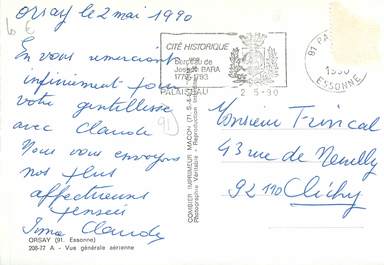 Orsay le 2 mai 1990
En vous remerciant
infiniment pour
votre gentillesse
avec Claude
Nous vous envoyons
nos plus
affectueuses
pensées
Claude
ORSAY (91. Essonne)
208-77 A - Vue générale aérienne
COMBIER IMPRIMEUR MACON
CITÉ HISTORIQUE
Berceau de
Joseph BARA
PALAISEAU
2-5-90
91 PA
ESSONNE
Monsieur
43 rue de Neuilly
92110 Clichy